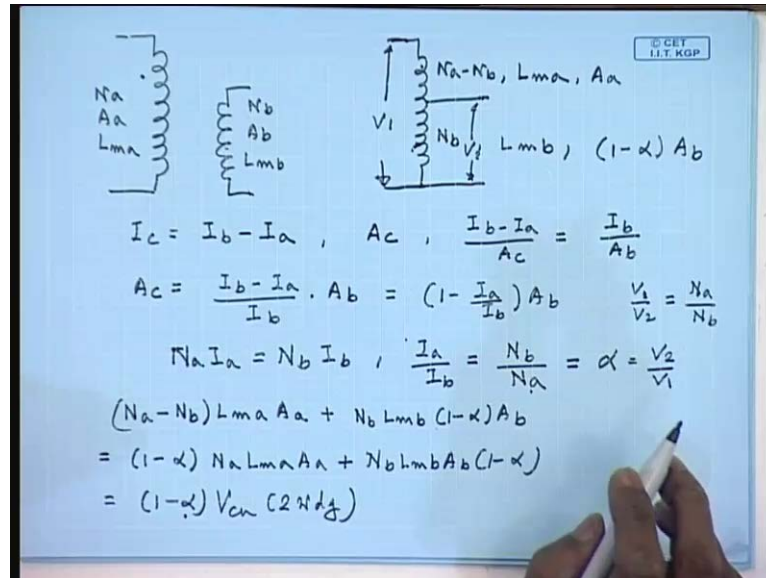 © CET
I.I.T. KGP
Na
Aa
Lma
Nb
Ab
Lmb
V1
Na-Nb, Lma, Aa
Nb V2 Lmb, (1-α) Ab
Ic = Ib - Ia , Ac , (Ib - Ia)/Ac = Ib/Ab
Ac = (Ib - Ia)/Ib . Ab = (1 - Ia/Ib) Ab
V1/V2 = Na/Nb
Na Ia = Nb Ib , Ia/Ib = Nb/Na = α = V2/V1
(Na-Nb) Lma Aa + Nb Lmb (1-α) Ab
= (1-α) Na Lma Aa + Nb Lmb Ab (1-α)
= (1-α) Vcu (2 wdg)